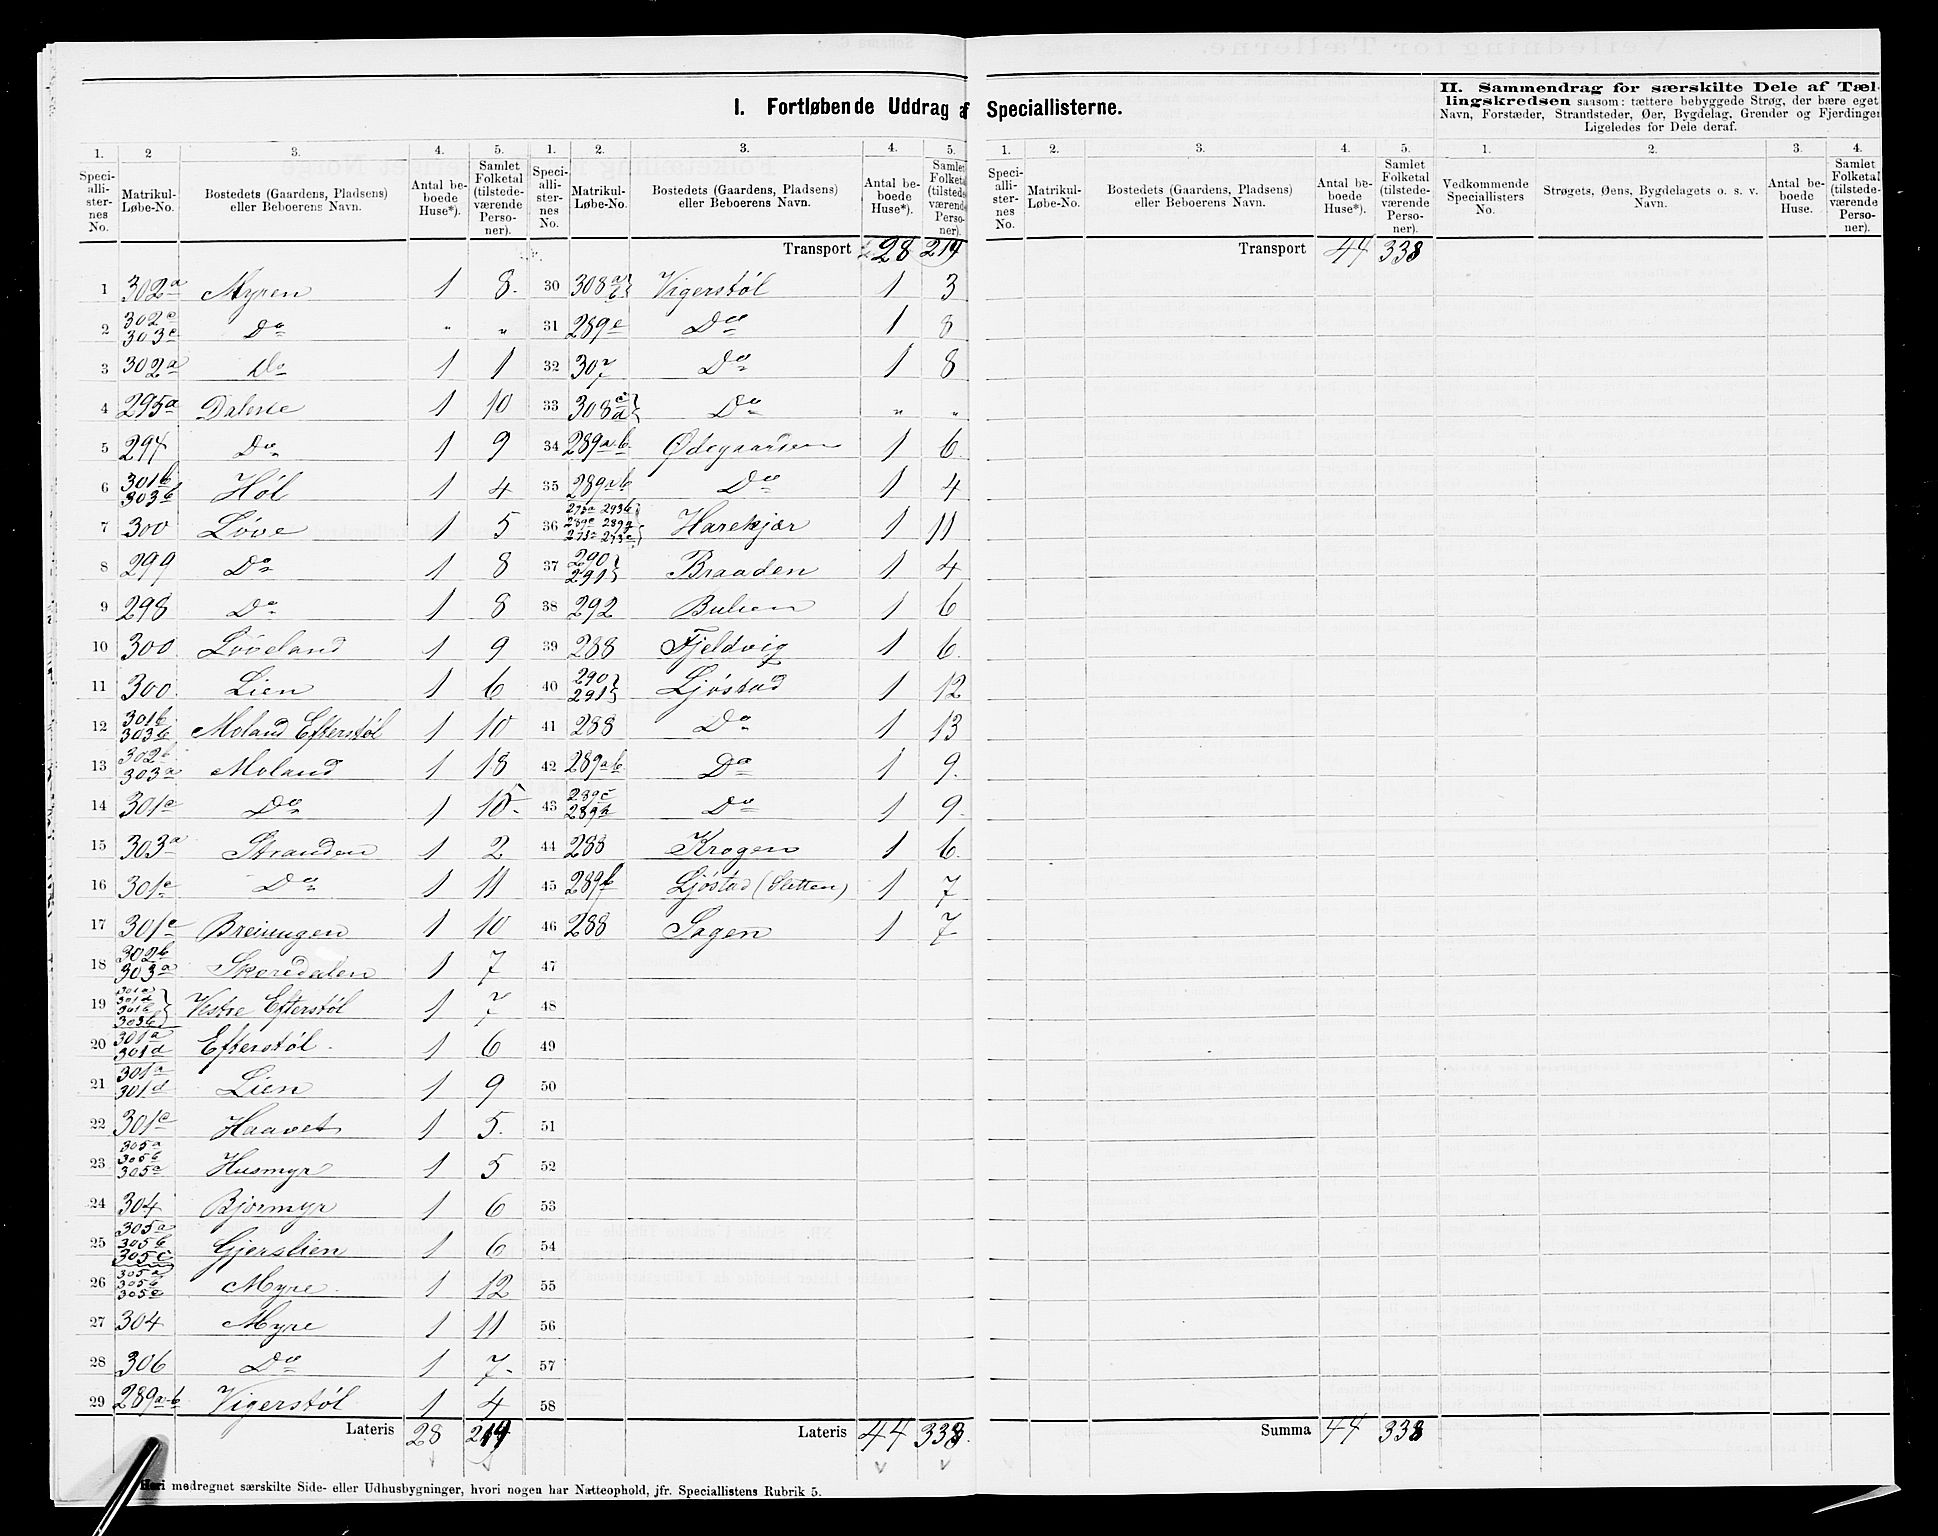 I. Fortløbende Uddrag af Speciallisterne.
II. Sammendrag for særskilte Dele af Tællingskredsen saasom: tættere bebyggede Strøg, der bære eget
Navn, Forstæder, Strandsteder, Øer, Bygdelag, Grender og Fjerdinger
Ligeledes for Dele deraf.
1. 2 3. 4. 5. 1. 2. 3. 4. 5. 1. 2. 3. 4. 5. 1. 2. 3. 4.
Speciallisternes No. Matrikul-Løbe-No. Bostedets (Gaardens, Pladsens) eller Beboerens Navn. Antal beboede Huse*). Samlet Folketal (tilstedeværende Personer).
Speciallisternes No. Matrikul-Løbe-No. Bostedets (Gaardens, Pladsens) eller Beboerens Navn. Antal beboede Huse*). Samlet Folketal (tilstedeværende Personer).
Speciallisternes No. Matrikul-Løbe-No. Bostedets (Gaardens, Pladsens) eller Beboerens Navn. Antal beboede Huse*). Samlet Folketal (tilstedeværende Personer).
Vedkommende Speciallisters No. Strøgets, Øens, Bygdelagets o. s. v. Navn. Antal beboede Huse. Samlet Folketal (tilstedeværende Personer).
1 302a Myren 1 8.
2 302c 303c Do " "
3 302a Do 1 1
4 295a Dalene 1 10
5 294 Do 1 9
6 301b 303b Høl 1 4
7 300 Løve 1 5
8 299 Do 1 8
9 298 Do 1 8
10 300 Løveland 1 9
11 300 Lien 1 6
12 301b 303b Moland Efterstøl 1 10
13 302b 303a Moland 1 18
14 301c Do 1 15.
15 303a Stranden 1 2
16 301c Do 1 11
17 301c Breiungen 1 10
18 302b 303a Skoredalen 1 7
19 301a 301d 301b 303b Vestre Efterstøl 1 7
20 301a 301d Efterstøl 1 6
21 301a 301d Lien 1 9
22 301c Haavet 1 5.
23 305a 305b 305c Husmyr 1 5
24 304 Bjørmyr 1 6
25 305a 305b 305c Gjerslien 1 6
26 305a 305b 305c Myre 1 12
27 304 Myre 1 11
28 306 Do 1 7.
29 289a-b Vigerstøl 1 4
Lateris 28 219
Transport 28 219
30 308a b Vigerstøl 1 3
31 289e Do 1 8
32 307 Do 1 8
33 308c a Do " "
34 289a-b Ødegaarden 1 6
35 289a-b Do 1 4
36 Harekjær 1 11
37 290 291 Braaden 1 4
38 292 Buheen 1 6
39 288 Fjeldvig 1 6.
40 290 291 Ljøstad 1 12
41 288 Do 1 13
42 289a-b Do 1 9.
43 289c 289h Do 1 9.
44 288 Krogen 1 6.
45 289b Ljøstad (Sletten) 1 7
46 288 Sagen 1 7
47
48
49
50
51
52
53
54
55
56
57
58
Lateris 44 338.
Transport 44 338
Summa 44 338
Heri medregnet særskilte Side- eller Udhusbygninger, hvori nogen har Natteophold, jfr. Speciallistens Rubrik 5.